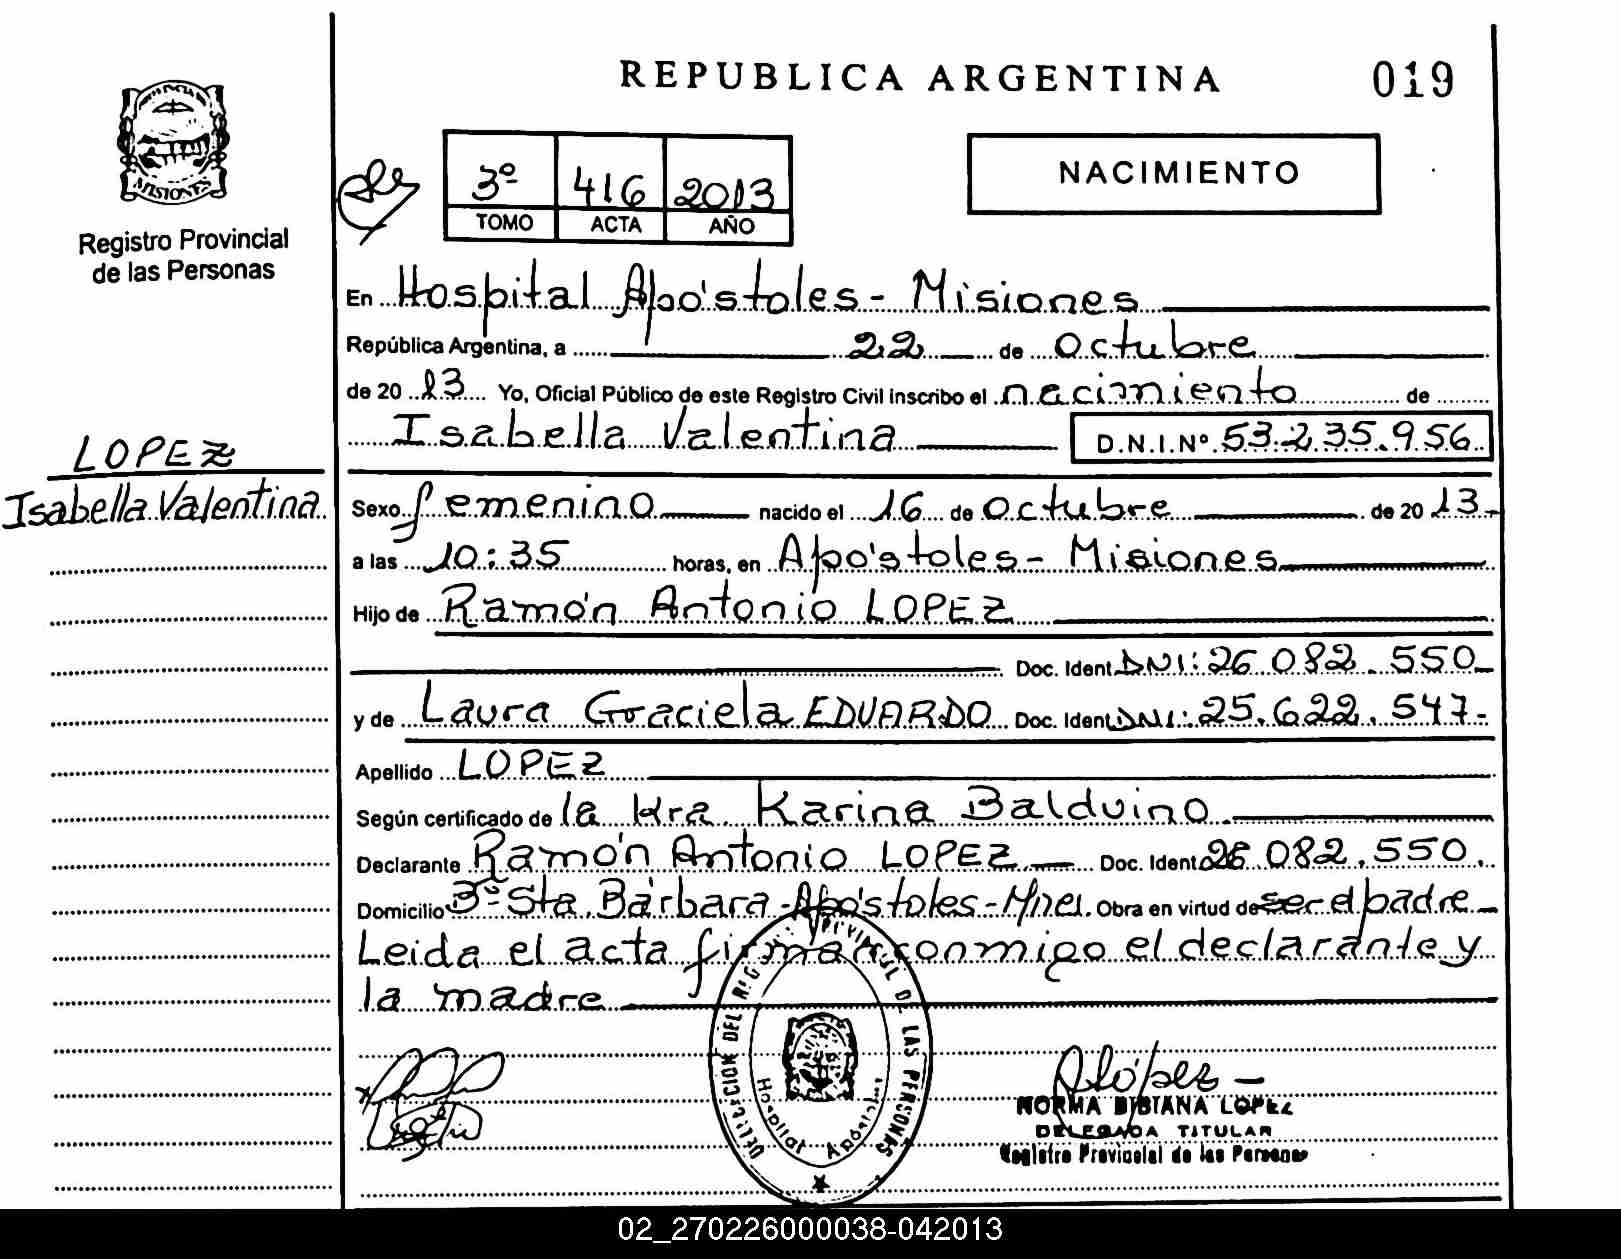 REPUBLICA ARGENTINA
019
MISIONES
Registro Provincial
de las Personas
3º 416 2013
TOMO ACTA AÑO
NACIMIENTO
En Hospital Apóstoles - Misiones
República Argentina, a 22 de Octubre
de 2013 Yo, Oficial Público de este Registro Civil inscribo el nacimiento de
Isabella Valentina D.N.I.Nº 53.235.956
LOPEZ
Isabella Valentina
Sexo femenino nacido el 16 de Octubre de 2013-
a las 10:35 horas, en Apóstoles - Misiones
Hijo de Ramón Antonio LOPEZ
Doc. Ident. DNI: 26.082.550
y de Laura Graciela EDUARDO Doc. Ident. DNI: 25.622.547-
Apellido LOPEZ
Según certificado de la Karina Balduino
Declarante Ramón Antonio LOPEZ Doc. Ident. 26.082.550.
Domicilio Bº Sta Bárbara - Apóstoles - Mnes. Obra en virtud de ser el padre
Leida el acta firman conmigo el declarante y
la madre
DELEGACION DEL REG. PROVINCIAL DE LAS PERSONAS
Hospital Apóstoles
NORMA BIBIANA LOPEZ
DELEGADA TITULAR
Registro Provincial de las Personas
02_270226000038-042013